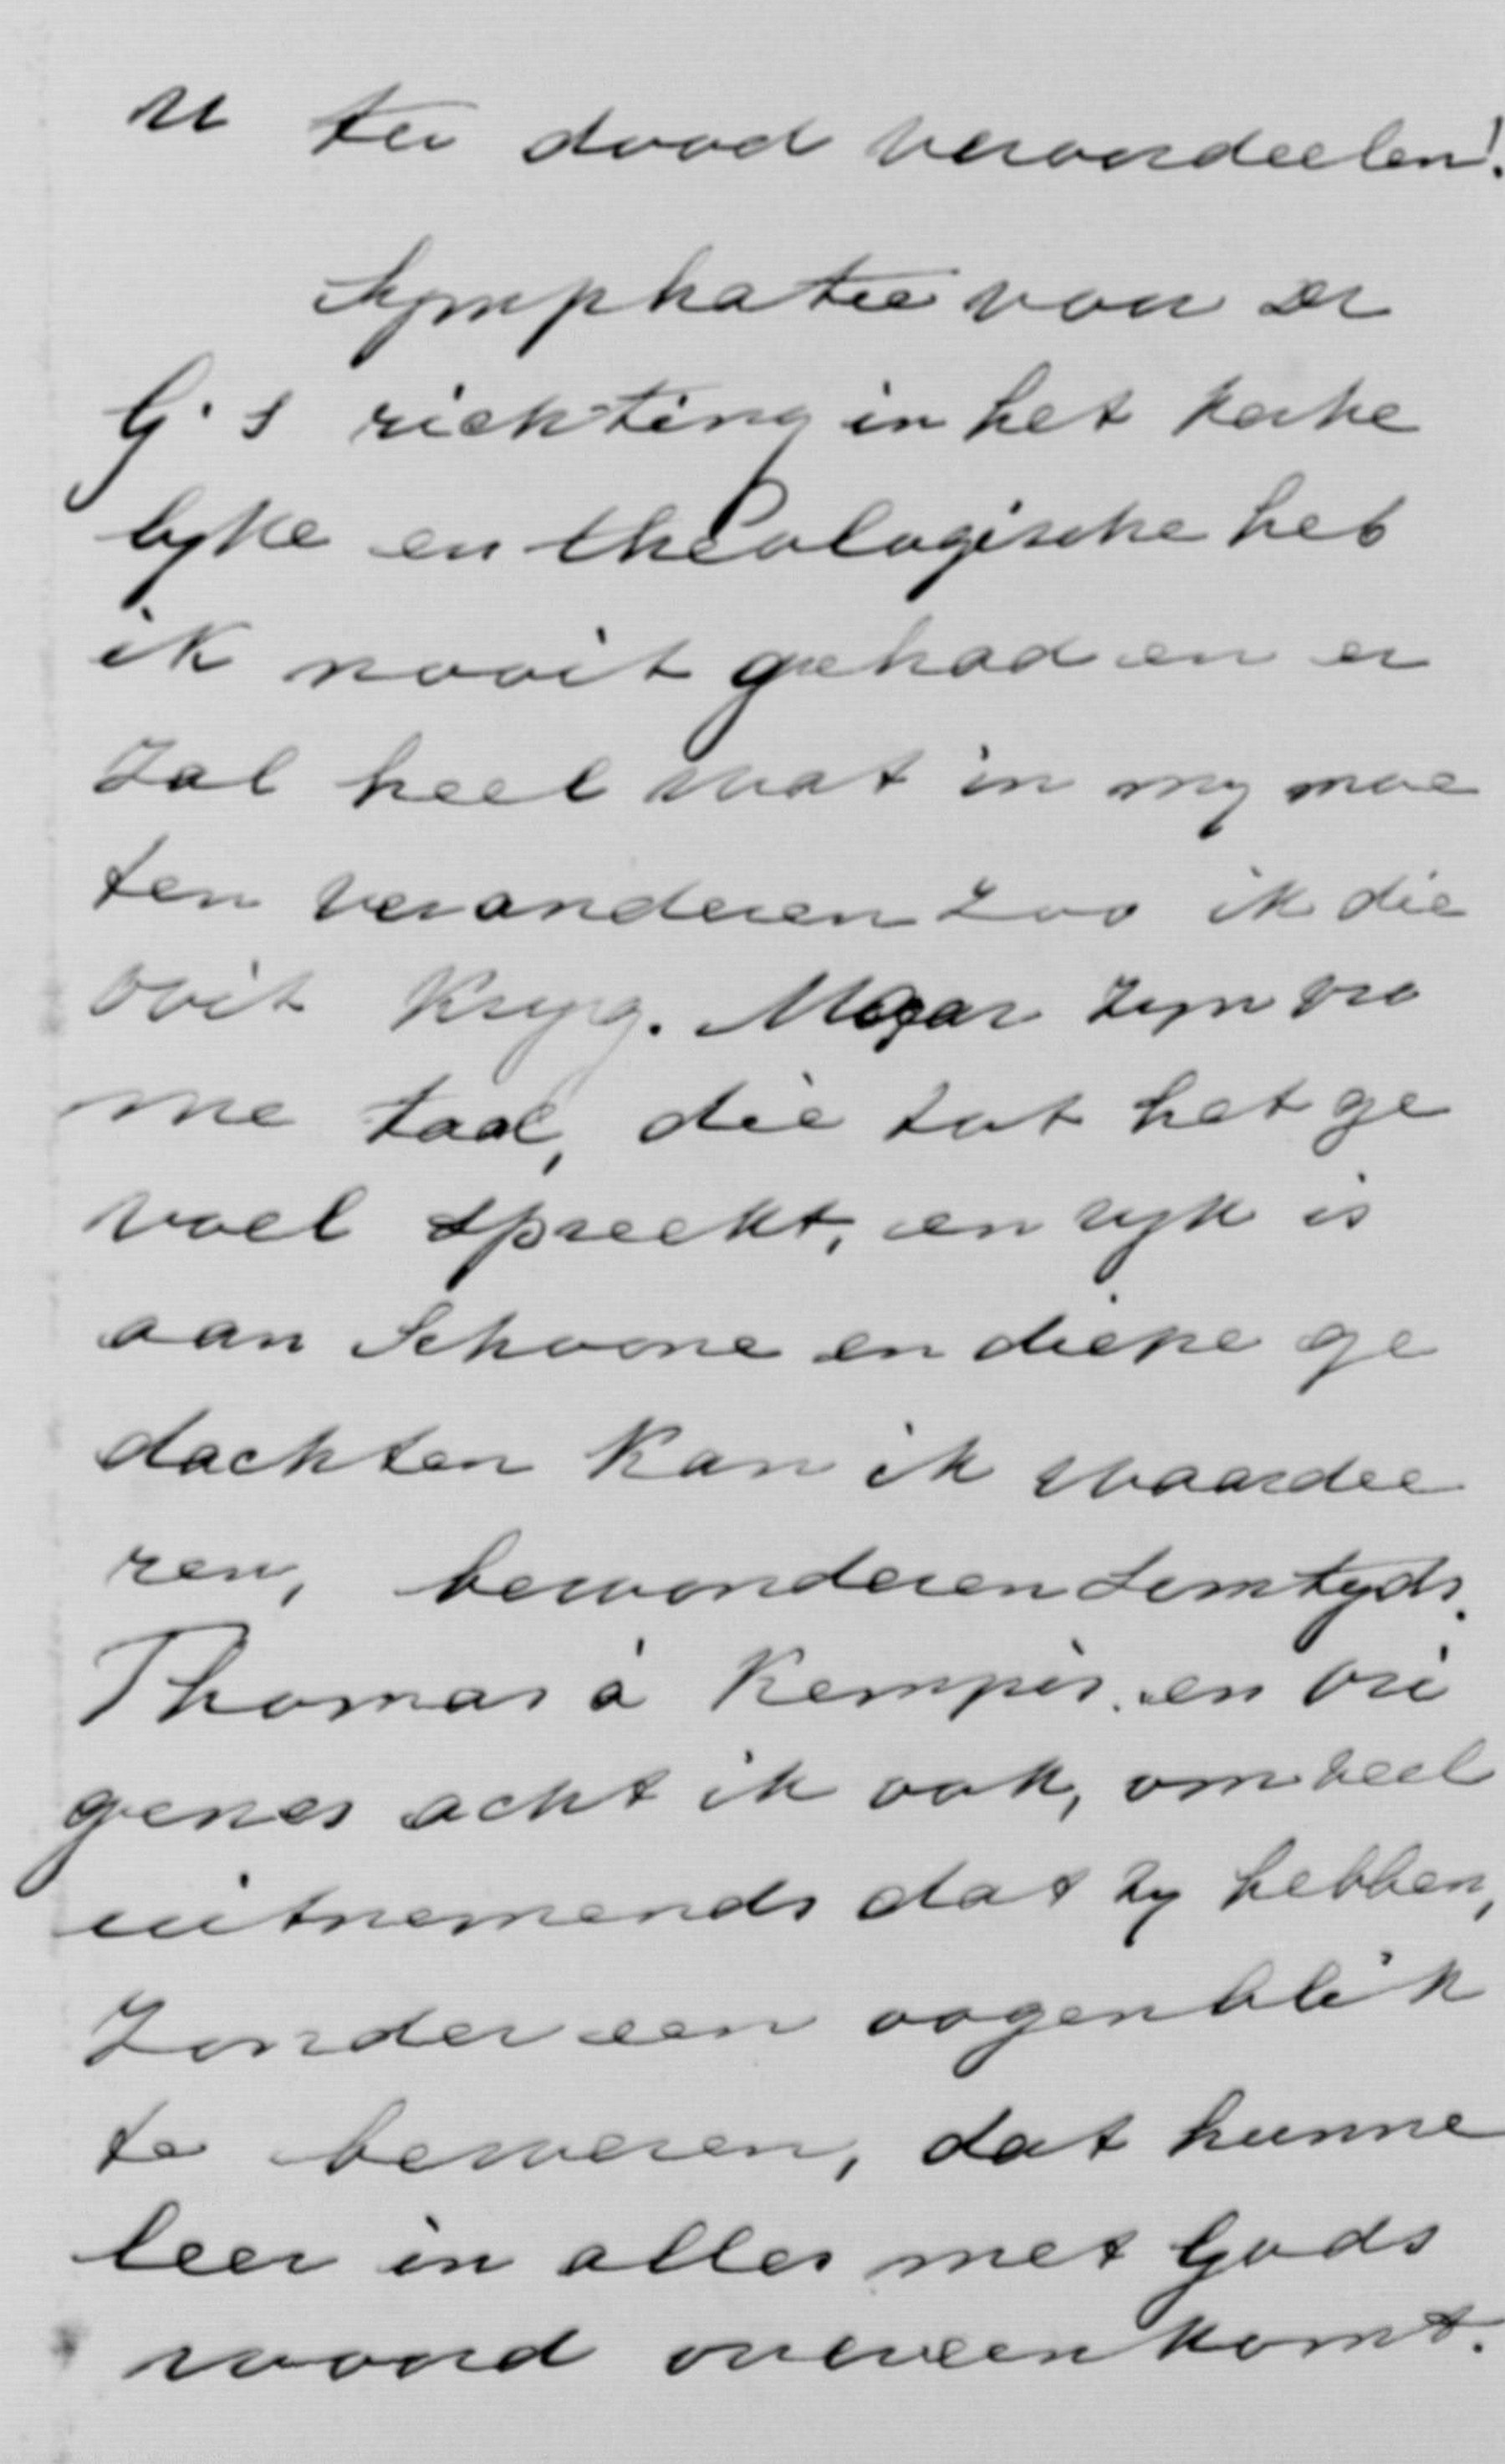 u ter dood veroordeelen!
Symphatie voor Dr
G.'s richting in het kerke
lyke en theologische heb
ik nooit gehad en er
zal heel wat in my moe
ten veranderen zoo ik die
ooit kryg. Maar zyn vro
me taal, die tot het ge
voel spreekt, en ryk is
aan schoone en diepe ge
dachten kan ik waardee
ren, bewonderen somtyds.
Thomas à Kempis en Ori
genes acht ik ook, om veel
uitnemends dat zy hebben,
zonder een oogenblik
te beweren, dat hunne
leer in alles met Gods
woord overeenkomt.